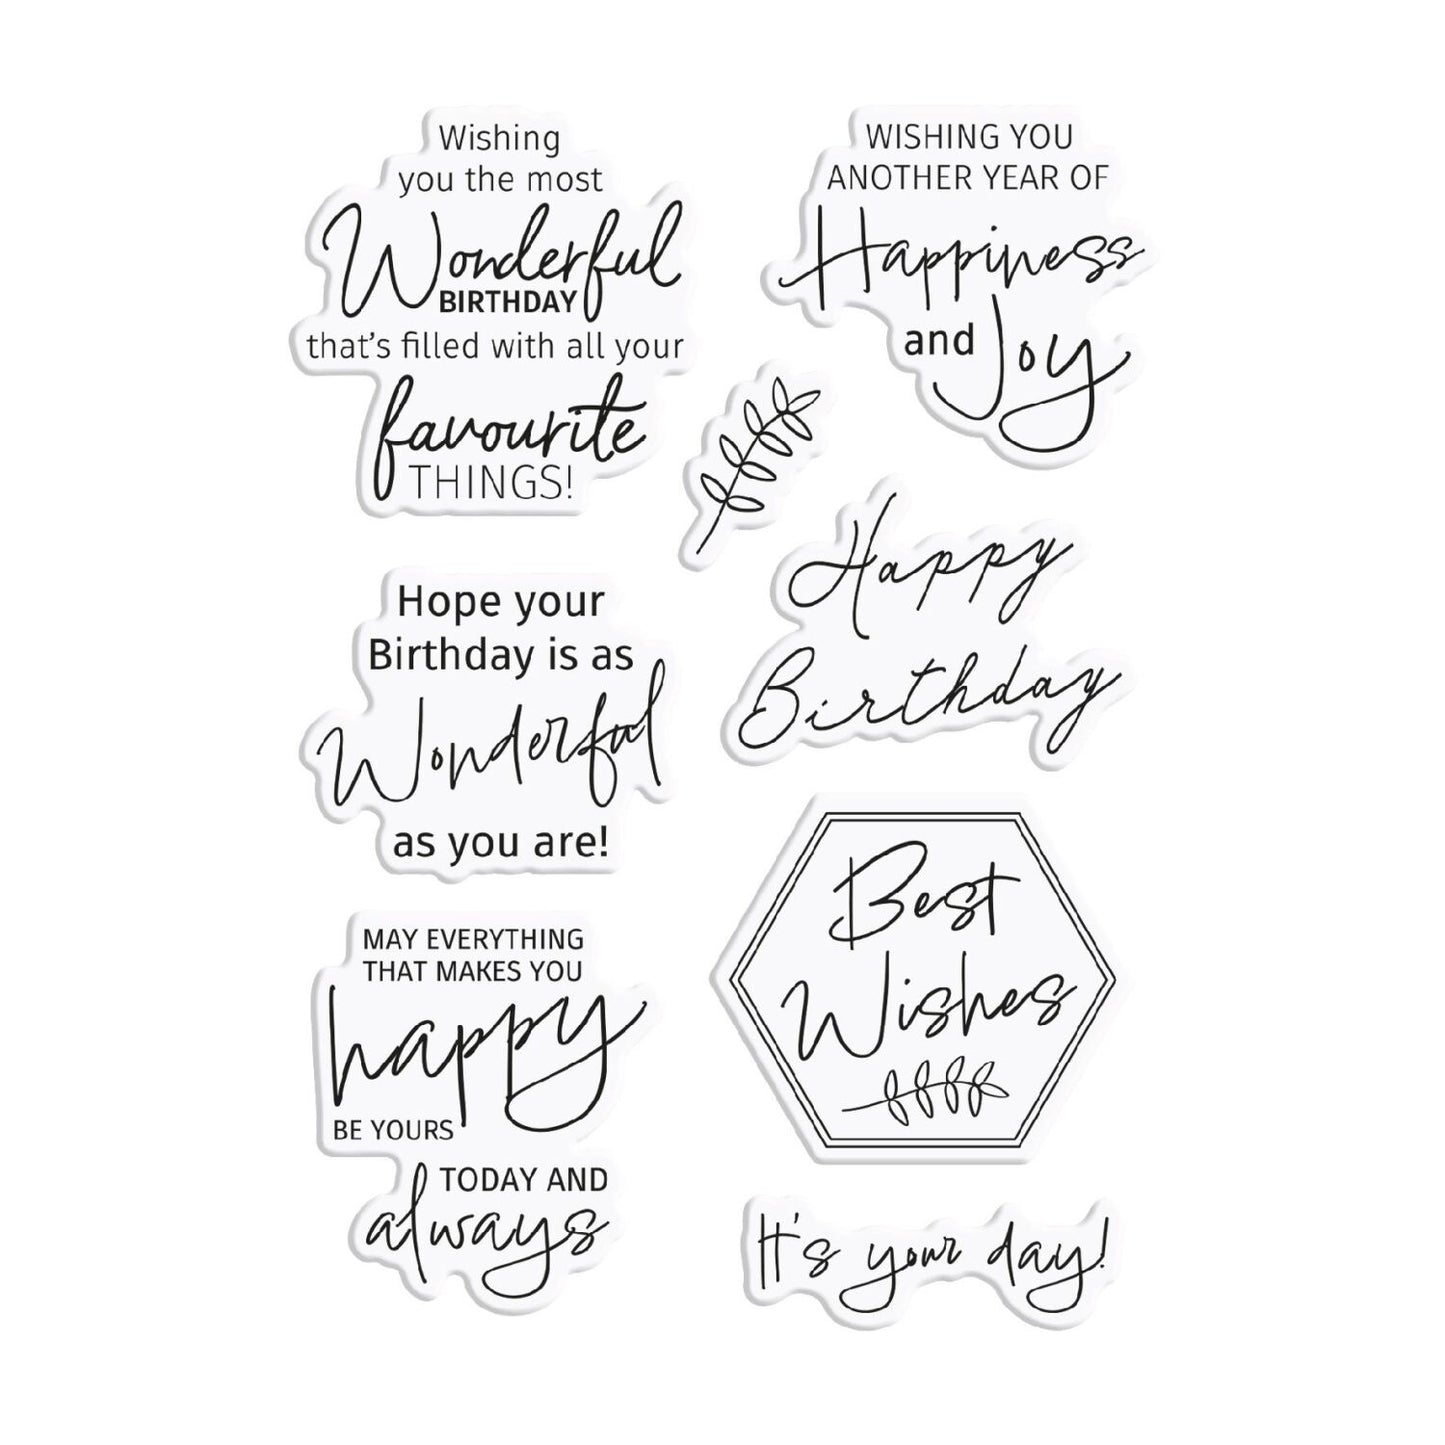 Wishing
you the most
Wonderful
BIRTHDAY
that's filled with all your
favourite
THINGS!
WISHING YOU
ANOTHER YEAR OF
Happiness
and Joy
Happy
Birthday
Hope your
Birthday is as
Wonderful
as you are!
Best
Wishes
MAY EVERYTHING
THAT MAKES YOU
happy
BE YOURS
TODAY AND
always
It's your day!